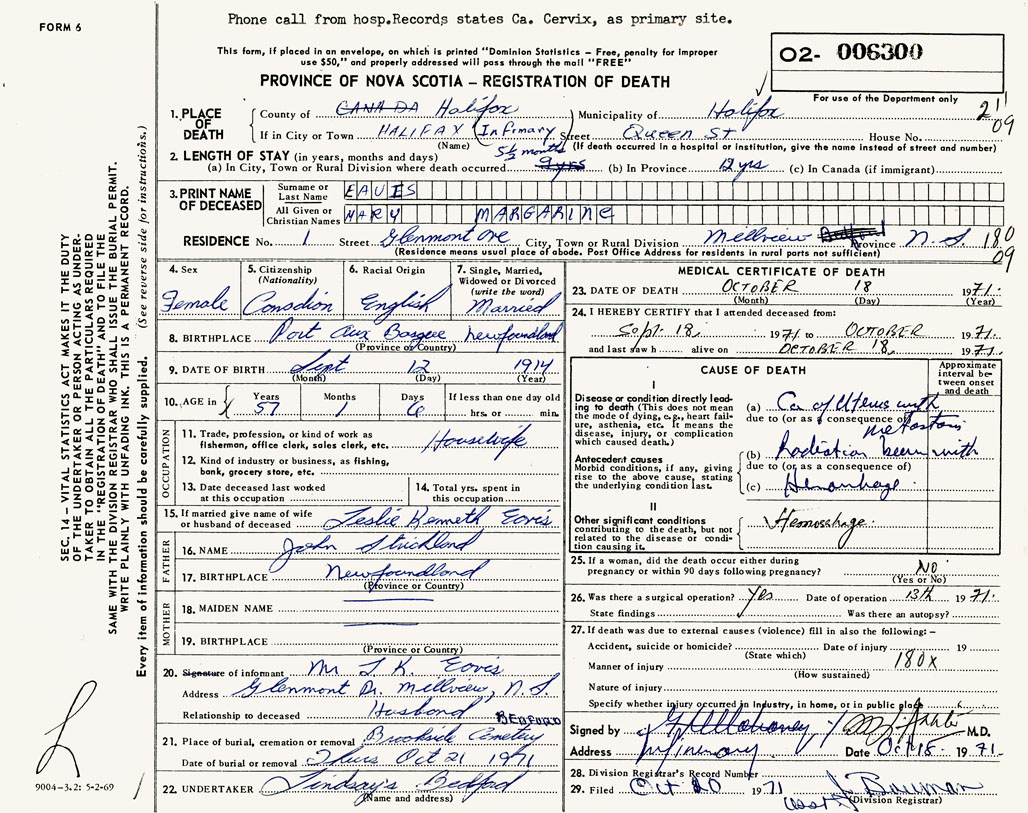 FORM 6
Phone call from hosp.Records states Ca. Cervix, as primary site.
This form, if placed in an envelope, on which is printed "Dominion Statistics – Free, penalty for improper
use $50," and properly addressed will pass through the mail "FREE"
PROVINCE OF NOVA SCOTIA – REGISTRATION OF DEATH
O2- 006300
For use of the Department only
211
09
1. PLACE OF DEATH
County of CANADA Halifax Municipality of Halifax
If in City or Town HALIFAX (Infirmary) Street Queen St House No.
(Name) (If death occurred in a hospital or institution, give the name instead of street and number)
2. LENGTH OF STAY (in years, months and days) 5½ months
(a) In City, Town or Rural Division where death occurred 9yrs (b) In Province 12 yrs (c) In Canada (if immigrant)
3. PRINT NAME OF DECEASED
Surname or Last Name EAVIS
All Given or Christian Names MARY MARGARINE
RESIDENCE No. 1 Street Glenmont Ave City, Town or Rural Division Millview Bedford Province N.S. 180
(Residence means usual place of abode. Post Office Address for residents in rural parts not sufficient) 09
4. Sex Female
5. Citizenship (Nationality) Canadian
6. Racial Origin English
7. Single, Married, Widowed or Divorced (write the word) Married
8. BIRTHPLACE Port Aux Basque Newfoundland
(Province or Country)
9. DATE OF BIRTH Sept 12 1914
(Month) (Day) (Year)
10. AGE in Years Months Days If less than one day old
57 1 6 hrs. or min.
OCCUPATION
11. Trade, profession, or kind of work as fisherman, office clerk, sales clerk, etc. Housewife
12. Kind of industry or business, as fishing, bank, grocery store, etc.
13. Date deceased last worked at this occupation
14. Total yrs. spent in this occupation
15. If married give name of wife or husband of deceased Leslie Kenneth Eavis
FATHER
16. NAME John Strickland
17. BIRTHPLACE Newfoundland
(Province or Country)
MOTHER
18. MAIDEN NAME
19. BIRTHPLACE
(Province or Country)
20. Signature of informant Mr L.K. Eavis
Address Glenmont Dr. Millview, N.S.
Relationship to deceased Husband
BEDFORD
21. Place of burial, cremation or removal Brookside Cemetery
Date of burial or removal Thurs Oct 21 1971
22. UNDERTAKER Lindsay's Bedford
(Name and address)
MEDICAL CERTIFICATE OF DEATH
23. DATE OF DEATH OCTOBER 18 1971.
(Month) (Day) (Year)
24. I HEREBY CERTIFY that I attended deceased from:
Sept. 18, 1971 to OCTOBER 1971.
and last saw h alive on OCTOBER 18, 1971.
CAUSE OF DEATH
Approximate interval between onset and death
I
Disease or condition directly leading to death (This does not mean the mode of dying, e.g., heart failure, asthenia, etc. It means the disease, injury, or complication which caused death.)
(a) Ca of Uterus with
due to (or as a consequence of) metastasis
Antecedent causes
Morbid conditions, if any, giving rise to the above cause, stating the underlying condition last.
(b) Radiation burn with
due to (or as a consequence of)
(c) Hemorrhage
II
Other significant conditions
contributing to the death, but not related to the disease or condition causing it.
Hemorrhage.
25. If a woman, did the death occur either during pregnancy or within 90 days following pregnancy? NO
(Yes or No)
26. Was there a surgical operation? Yes Date of operation 13th 1971.
State findings Was there an autopsy?
27. If death was due to external causes (violence) fill in also the following: –
Accident, suicide or homicide? Date of injury 19
(State which) 180X
Manner of injury
(How sustained)
Nature of injury
Specify whether injury occurred in Industry, in home, or in public place
Signed by M.D.
Address Infirmary Date Oct 18 1971.
28. Division Registrar's Record Number
29. Filed Oct 20 1971 J. Bauman
(Asst) (Division Registrar)
SEC. 14 – VITAL STATISTICS ACT MAKES IT THE DUTY
OF THE UNDERTAKER OR PERSON ACTING AS UNDER-
TAKER TO OBTAIN ALL THE PARTICULARS REQUIRED
IN THE "REGISTRATION OF DEATH" AND TO FILE THE
SAME WITH THE DIVISION REGISTRAR WHO SHALL ISSUE THE BURIAL PERMIT.
WRITE PLAINLY WITH UNFADING INK. THIS IS A PERMANENT RECORD.
Every item of information should be carefully supplied. (See reverse side for instructions.)
9004-3.2: 5-2-69